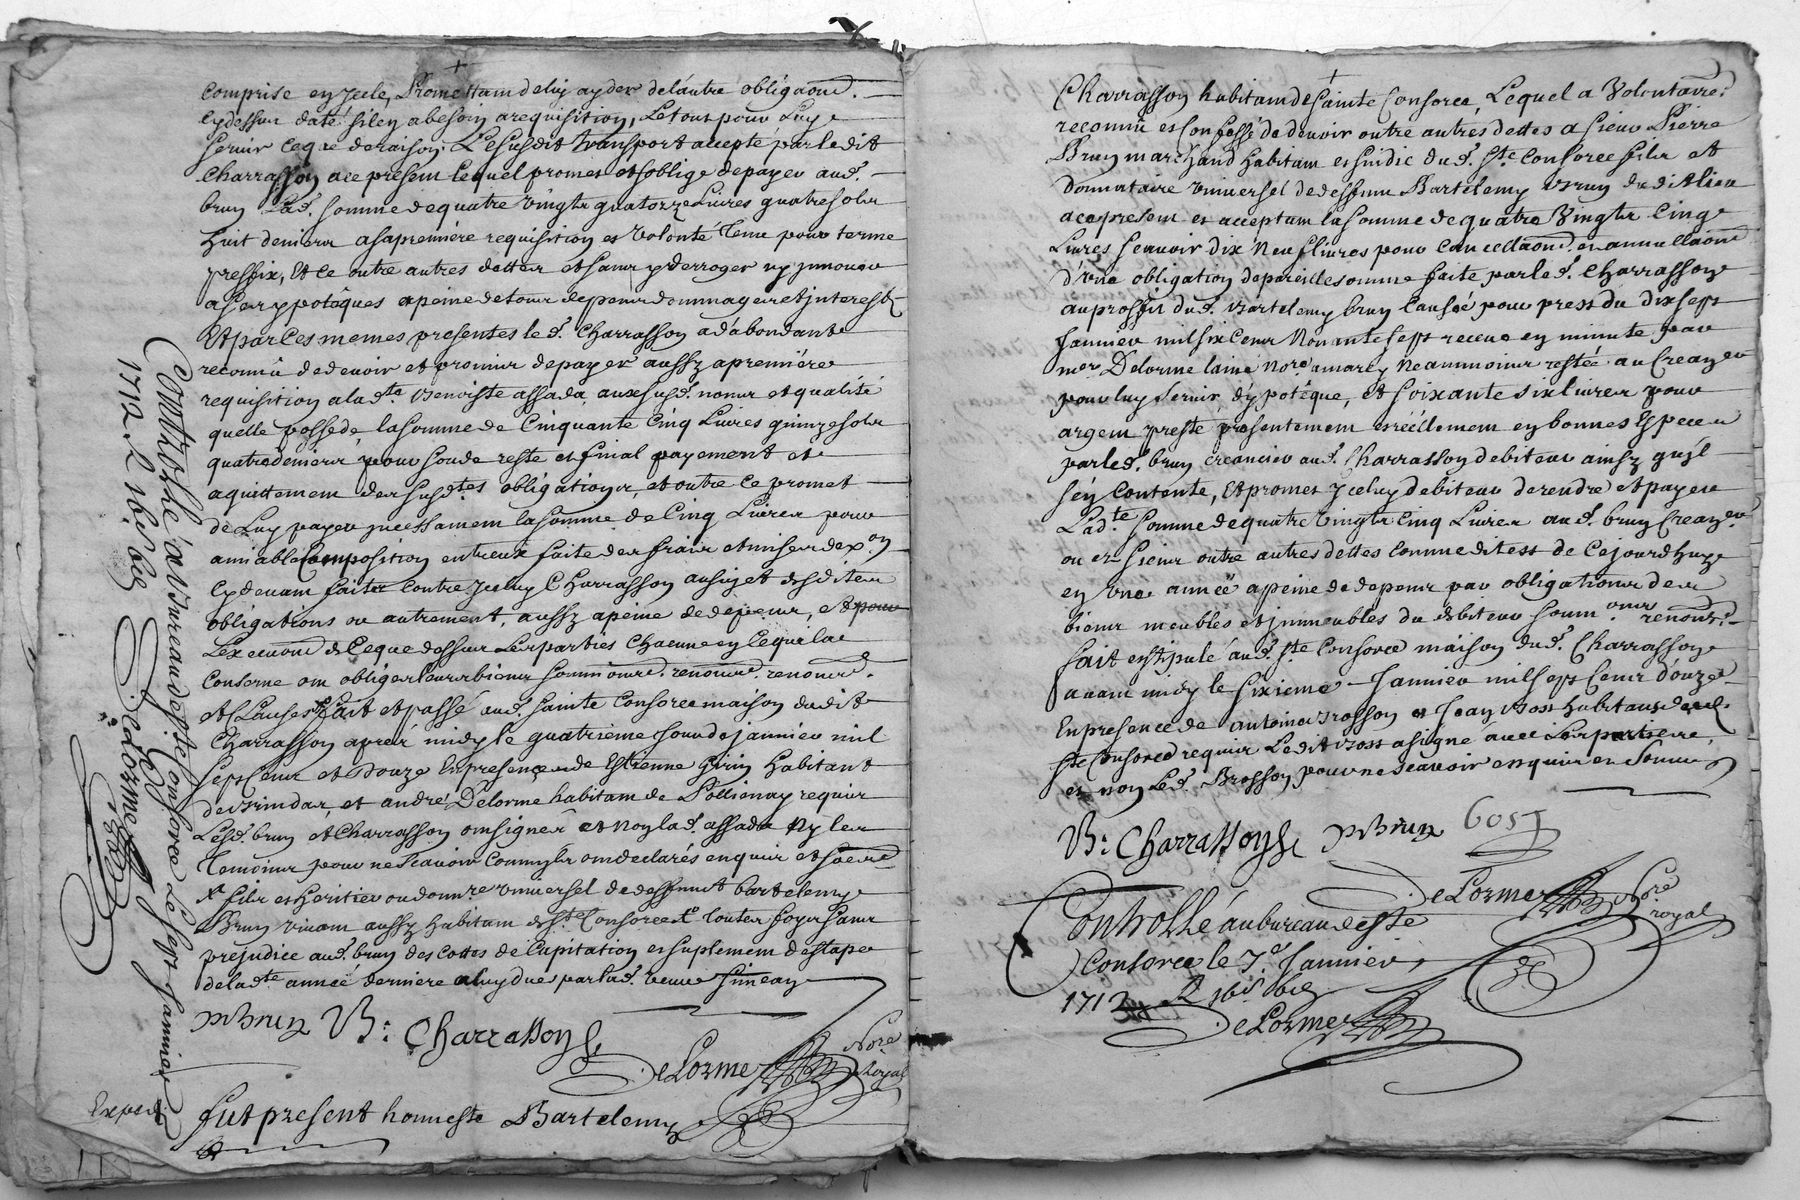 comprise en jcele, Promettam deluy ayder delautre obligaond.
cydessur daté sil en a besoin a requisition, Le tout pour Luy
servir ce que de raison. Le susdit transport accepté par ledit
Charrasson a ce presem lequel promet et soblige depayer aud.
brun Lad. somme de quatre vingtz quatorze Livres quatre solz
huit denierz a sa premiere requisition et volonté Tenu pour terme
preffix, Et ce outre autres dettez et sanz y derroger ny jnnover
a ses ypotêques a peine de tour depenz dommages et jnterestz
Et par Ces memes presentes le d. Charrasson a dâbondant
reconnû de devoir et promix de payer aussy a premiére
requisition a la dte Benoiste assada aux susd. noms et qualité
quelle possede, la somme de Cinquante Cinq Livres quinze solz
quatre denierz pour soude reste et final payement et
aquittement des susdtes obligations, et outre ce promet
de Luy payer jncessamem la somme de Cinq Livrez pour
amiable Composition entreux faite des fraix et mises dexon
Cydevam faitez contre jceluy Charrasson au sujet desditez
obligations ou autrement, aussy a peine de depenz, et pour
Lexecuond de Ce que dessus Les parties Chacune en Ce qui la
Conserne om obliges leurs bienz soummond. renond. renond.
et Clauses Fait et passé aud. Sainte Consorce maison dudit
Charrasson aprez midy le quatrieme Jour de janvier mil
sept Cenz et Douze En presence de Estienne Grin habitant
de Brindaz, et andré Delorme habitam de Pollionay requiz
Lesd. brun et Charrasson om signer et non lad. assada Ny lez
Temoinz pour ne scavoir Commilz om declarés enquiz et som̃e
x filz et heritier ou donnre universel de deffunct bartelemy
Brun vivam aussy habitam de ste Consorce to toutez foyz sanz
prejudice aud. brun des cottes de Capitation et suplemem destape
de la dte année derniere a luy dues par lad. veuve Simean
P Brun B: Charrasson
DeLorme Nore Royal
Exped.
fut present honneste Bartelemy
Controllé au bureau de Ste Consorce Le Sept Janvier
1712. R 16s 6d
DeLorme
Charrasson habitam de Sainte Consorce, Lequel a Volontairemt
reconnu et Confessé de devoir outre autres dettes a sieur Pierre
Brun marchand habitam et sindic dud. Ste Consorce filz et
donnataire universel de deffunct Bartelemy Brun dudit Lieu
a ce presem et acceptam la somme de quatre Vingtz Cinq
Livres scavoir dix Neuf livres pour Cancellaond. et annullaond
d'une obligation de pareille somme faite par led. Charrasson
au proffit dud. Bartelemy brun Causée pour prest du dix sept
Janvier mil six Cenz Nonante sept receue en minute par
mer Delorme lainé Nore a marcy Neanmoinz restée au Creanzer
pour luy servir d'ypotêque, et soixante six livrez pour
argem presté presentement et réellement en bonnes Especes
par led. brun Creancier aud. Charrasson debiteur ainsy quil
sen Contente, Et promet jceluy debiteur de rendre et payer
Ladte somme de quatre vingtz Cinq Livrez aud. brun Creanzer
ou ez siens outre autres dettes comme dit est de Ce jourdhuy
en une année a peine de depenz par obligations de ses
bienz meubles et jmmeubles du debiteur soumons renond.
Fait et stipulé aud. Ste Consorce maison dud. Charrasson
avam midy le sixieme Janvier mil sept Cenz douze
En presence de antoine Brosson et Jean Bost habitans dud.
Ste Consorce requiz Ledit Bost a signé avec Les partiez
et non Led. Brosson pour ne scavoir enquiz et sommé
B: Charrasson P Brun Bost
DeLorme Nore royal
Controllé au bureau de Ste
Consorce le 7e Janvier
1712 R 16s 6d
DeLorme